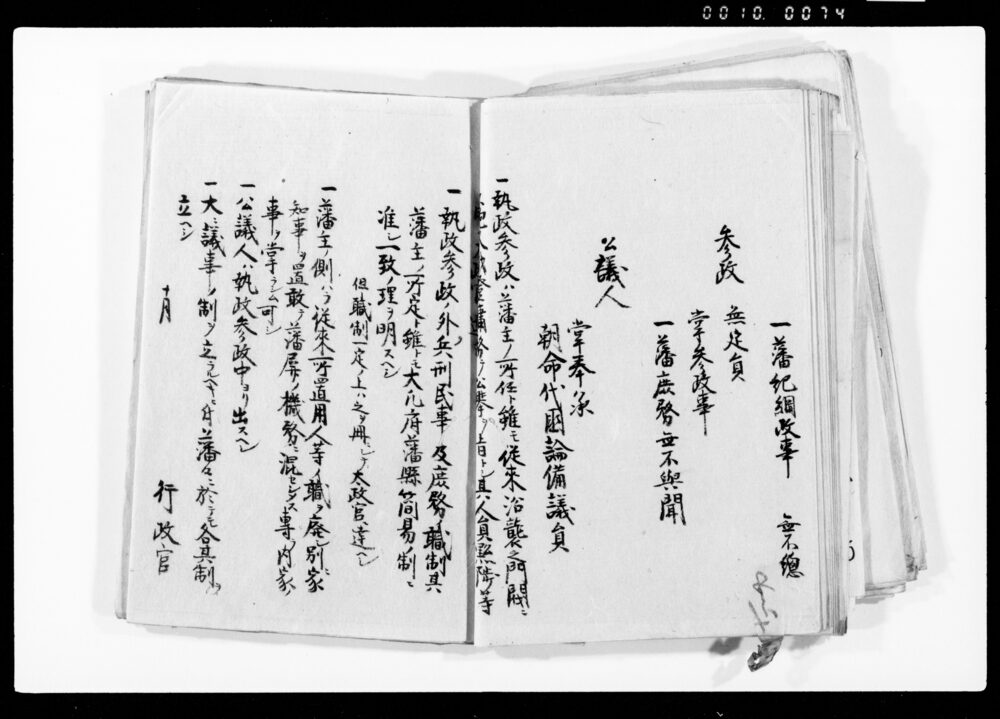 0010. 0074
一藩紀綱政事 無不總
参政 無定員
掌参政事
一藩庶務無不與聞
公議人
掌奉承
朝命代國論備議員
一執政参政ハ藩主ノ所任ト雖モ従来沿襲之門閥ニ
人員黜陟等
一執政参政ノ外兵刑民事及庶務ノ職制其
藩主ノ所定ト雖トモ大凡府藩縣簡易ノ制ニ
准シ一致ノ理ヲ明スヘシ
但職制一定ノ上ハ之ヲ冊ニシテ太政官ニ達ヘシ
一藩主ノ側ハラ従来所置用人等ノ職ヲ廃シ別ニ家
知事ヲ置敢テ藩屏ノ機務ニ混セシメス専ラ内家ノ
事ヲ掌ラシム可シ
一公議人ハ執政参政中ヨリ出スヘシ
一大ニ議事ノ制ヲ立ラルヘキニ付藩々ニ於テモ各其制ヲ
立ヘシ
十月
行政官